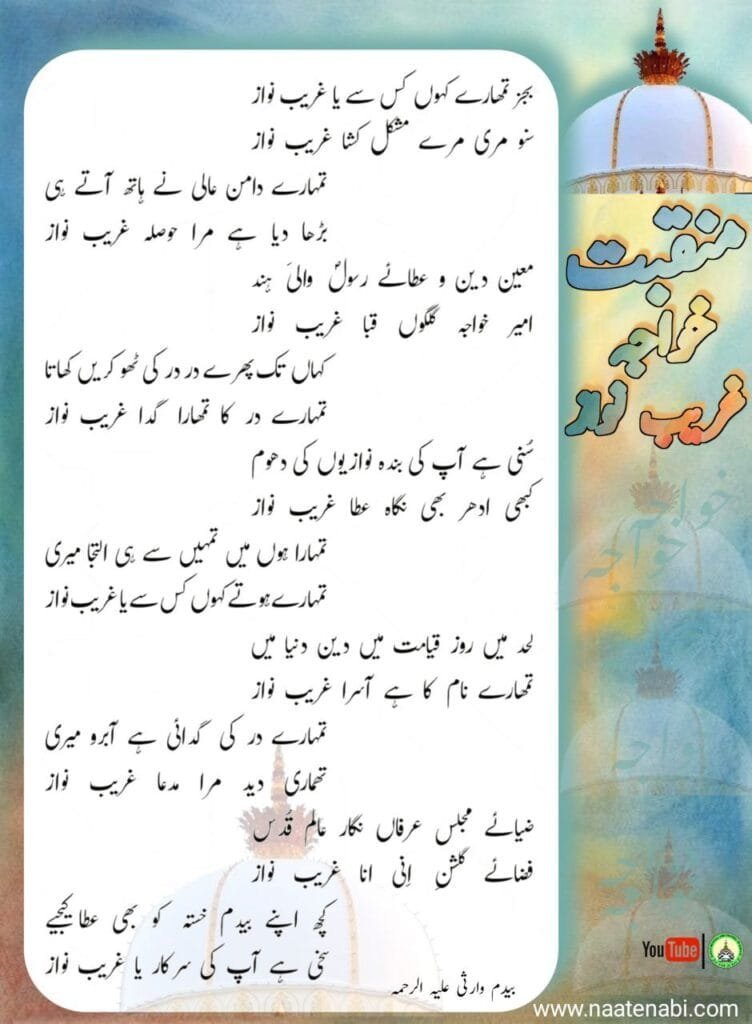 منقبت
خواجہ
غریب نواز
بجز تمھارے کہوں کس سے یا غریب نواز
سنو مری مرے مشکل کشا غریب نواز
تمہارے دامن عالی نے ہاتھ آتے ہی
بڑھا دیا ہے مرا حوصلہ غریب نواز
معین دین و عطائے رسولؐ والیٔ ہند
امیر خواجہ گلگوں قبا غریب نواز
کہاں تک پھرے در در کی ٹھوکریں کھاتا
تمہارے در کا تمھارا گدا غریب نواز
سُنی ہے آپ کی بندہ نوازیوں کی دھوم
کبھی ادھر بھی نگاہ عطا غریب نواز
تمہارا ہوں میں تمہیں سے ہی التجا میری
تمہارے ہوتے کہوں کس سے یا غریب نواز
لحد میں روز قیامت میں دین دنیا میں
تمھارے نام کا ہے آسرا غریب نواز
تمہارے در کی گدائی ہے آبرو میری
تمھاری دید مرا مدعا غریب نواز
ضیائے مجلس عرفاں نگار عالم قُدس
فضائے گلشنِ اِنی انا غریب نواز
کچھ اپنے بیدم خستہ کو بھی عطا کیجیے
سخی ہے آپ کی سرکار یا غریب نواز
بیدم وارثی علیہ الرحمہ
خواجہ
خواجہ
خواجہ
YouTube
www.naatenabi.com